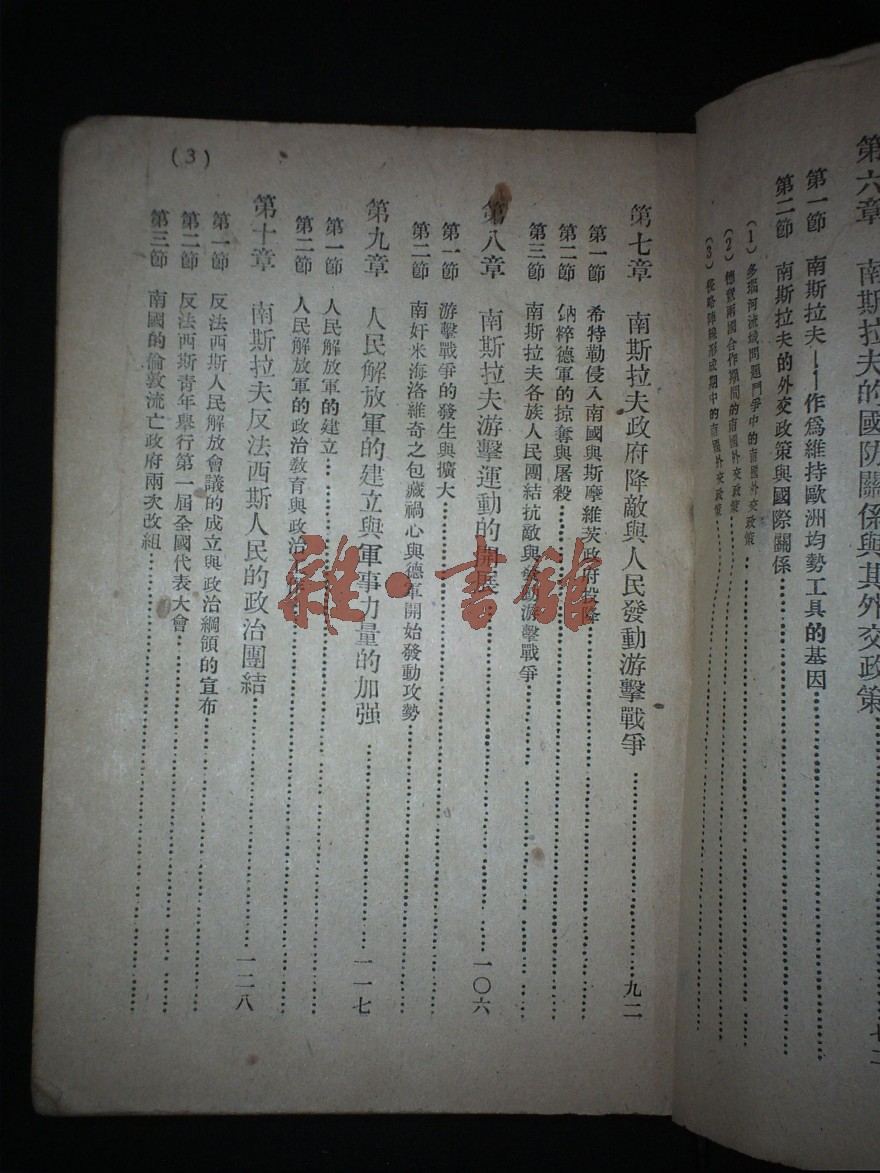 第六章　南斯拉夫的國防關係與其外交政策
第一節　南斯拉夫——作爲維持歐洲均勢工具的基因
第二節　南斯拉夫的外交政策與國際關係
(1)多瑙河流域問題鬥爭中的南國外交政策
(2)德意兩國合作期間的南國外交政策
(3)侵略陣線形成期中的南國外交政策
第七章　南斯拉夫政府降敵與人民發動游擊戰爭……九二
第一節　希特勒侵入南國與斯摩維茨政府投降
第二節　納粹德軍的掠奪與屠殺
第三節　南斯拉夫各族人民團結抗敵與發動游擊戰爭
第八章　南斯拉夫游擊運動的開展……一〇六
第一節　游擊戰爭的發生與擴大
第二節　南奸米海洛維奇之包藏禍心與德軍開始發動攻勢
第九章　人民解放軍的建立與軍事力量的加强……一一七
第一節　人民解放軍的建立
第二節　人民解放軍的政治敎育與政治
第十章　南斯拉夫反法西斯人民的政治團結……一二八
第一節　反法西斯人民解放會議的成立與政治綱領的宣布
第二節　反法西斯靑年舉行第一屆全國代表大會
第三節　南國的倫敦流亡政府兩次改組
(3)
雜·書館